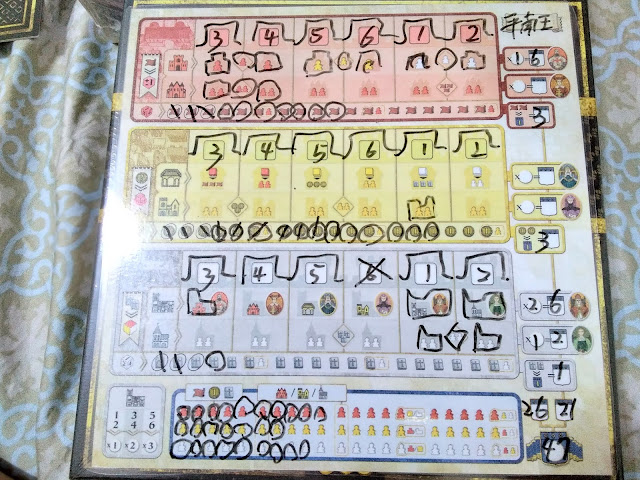 3 4 5 6 1 2
×1 5
3
3 4 5 6 1 2
×
×
3
3 4 5 1 2
×2 6
×1 2
=1
1 3 5
2 4 6
×1 ×2 ×3
26 21
47